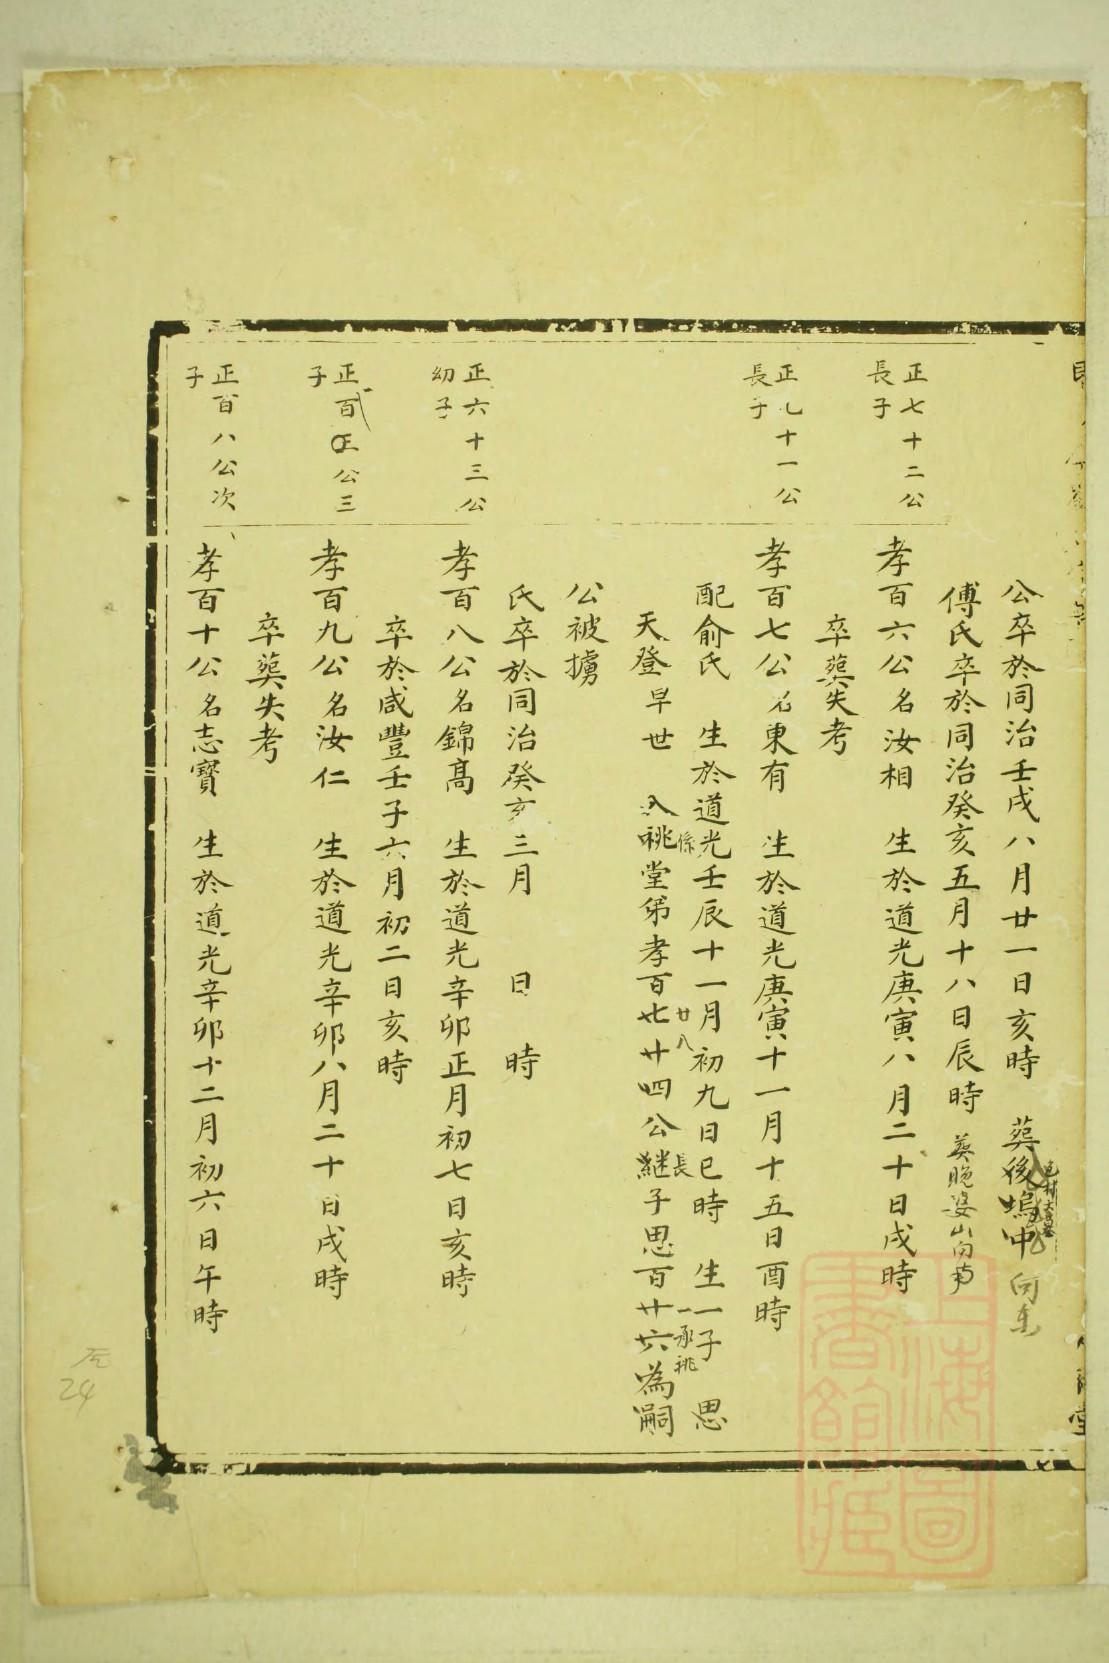 公卒於同治壬戌八月廿一日亥時 葬後塢中 向東
傅氏卒於同治癸亥五月十八日辰時 葬晚婆山向南
正七十二公
長子
孝百六公名汝相 生於道光庚寅八月二十日戌時
卒葬失考
正九十一公
長子
孝百七公名東有 生於道光庚寅十一月十五日酉時
配俞氏 生於道光壬辰十一月初九日巳時 生一子 思
係 廿八 長 一承祧
天登早世 入祧堂弟孝百七廿四公繼子思百廿六為嗣
公被擄
氏卒於同治癸亥三月 日 時
正六十三公
幼子
孝百八公名錦高 生於道光辛卯正月初七日亥時
卒於咸豐壬子六月初二日亥時
正百 公三
子
孝百九公名汝仁 生於道光辛卯八月二十日戌時
卒葬失考
正百八公次
子
孝百十公名志寶 生於道光辛卯十二月初六日午時
左
24
上海圖
書館藏